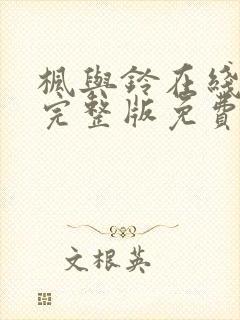 楓與鈴在綫
完整版免費
文根英